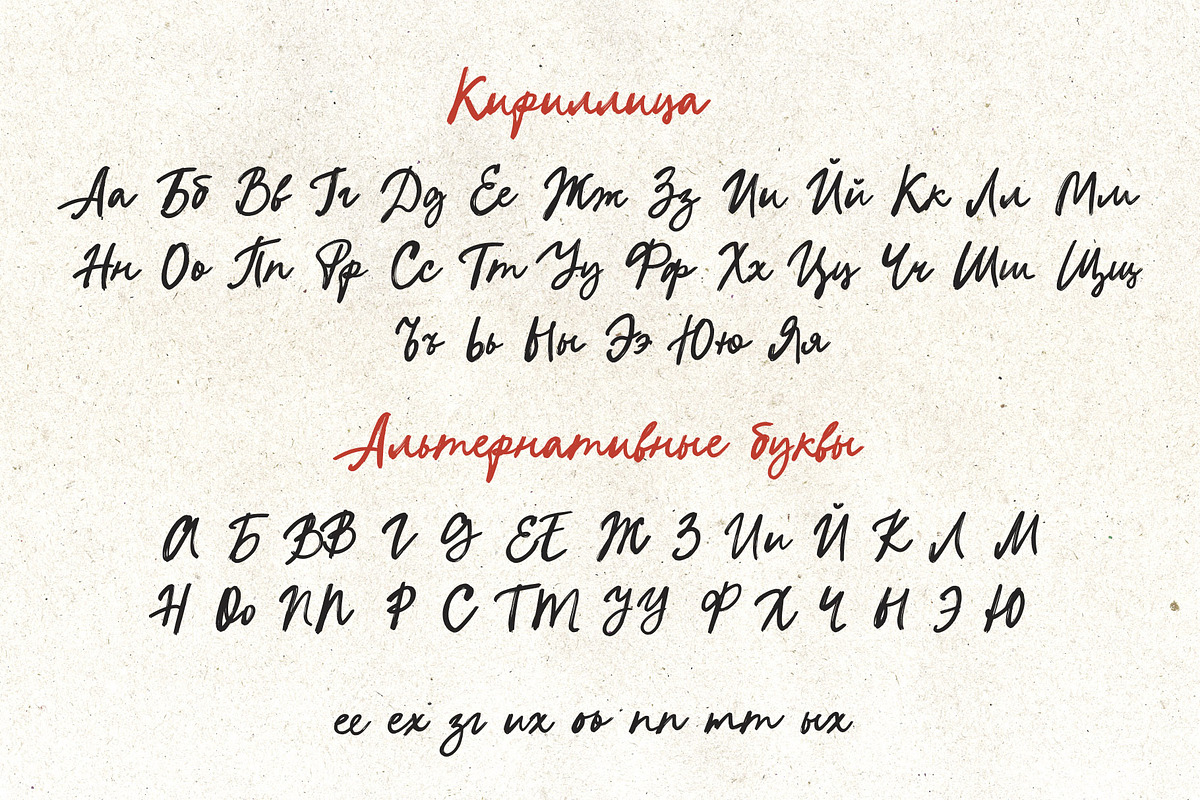 Кириллица
Аа Бб Вв Гг Дд Ее Жж Зз Ии Йй Кк Лл Мм
Нн Оо Пп Рр Сс Тт Уу Фф Хх Цц Чч Шш Щщ
Ъъ Ьь Ыы Ээ Юю Яя
Альтернативные буквы
А Б ВВ Г Д ЕЕ Ж З Ии Й К Л М
Н Оо ПП Р С ТТ УУ Ф Х Ч Ы Э Ю
ее ех зг их оо пп тт ых